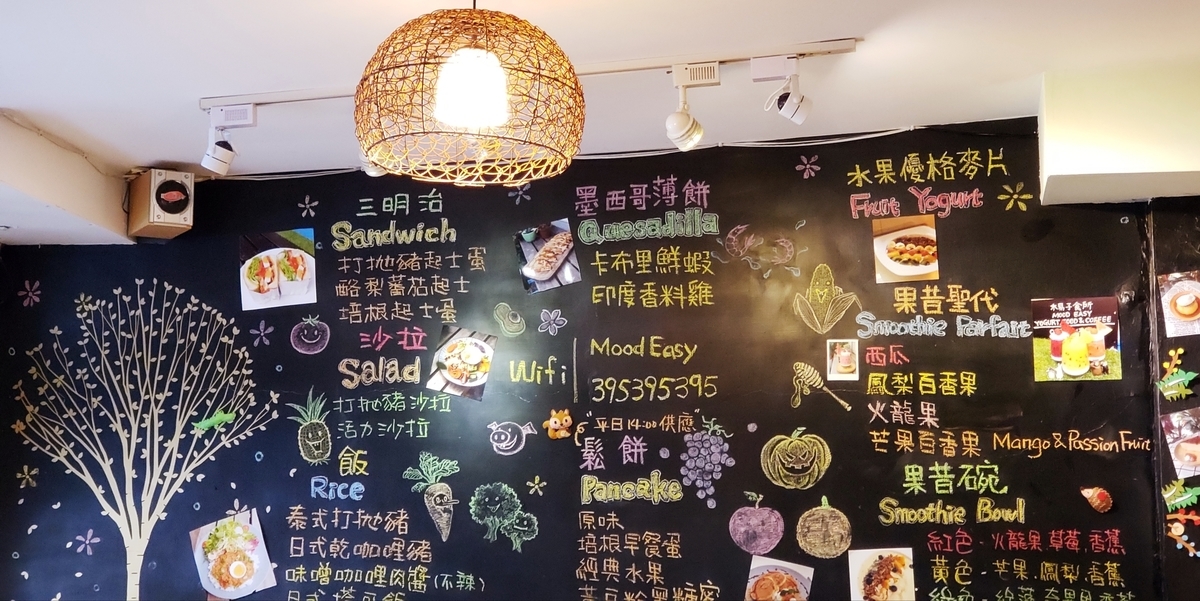 三明治
Sandwich
打拋豬起士蛋
酪梨蕃茄起士
培根起士蛋
沙拉
Salad
打拋豬沙拉
活力沙拉
飯
Rice
泰式打拋豬
日式乾咖哩豬
味噌咖哩肉醬(不辣)
墨西哥薄餅
Quesadilla
卡布里鮮蝦
印度香料雞
Wifi
Mood Easy
395395395
"平日14:00供應"
鬆餅
Pancake
原味
培根早餐蛋
經典水果
水果優格麥片
Fruit Yogurt
果昔聖代
Smoothie Parfait
MOOD EASY
YOGURT FOOD & COFFEE
西瓜
鳳梨百香果
火龍果
芒果百香果 Mango & Passion Fruit
果昔碗
Smoothie Bowl
紅色-火龍果.草莓.香蕉
黃色-芒果.鳳梨.香蕉